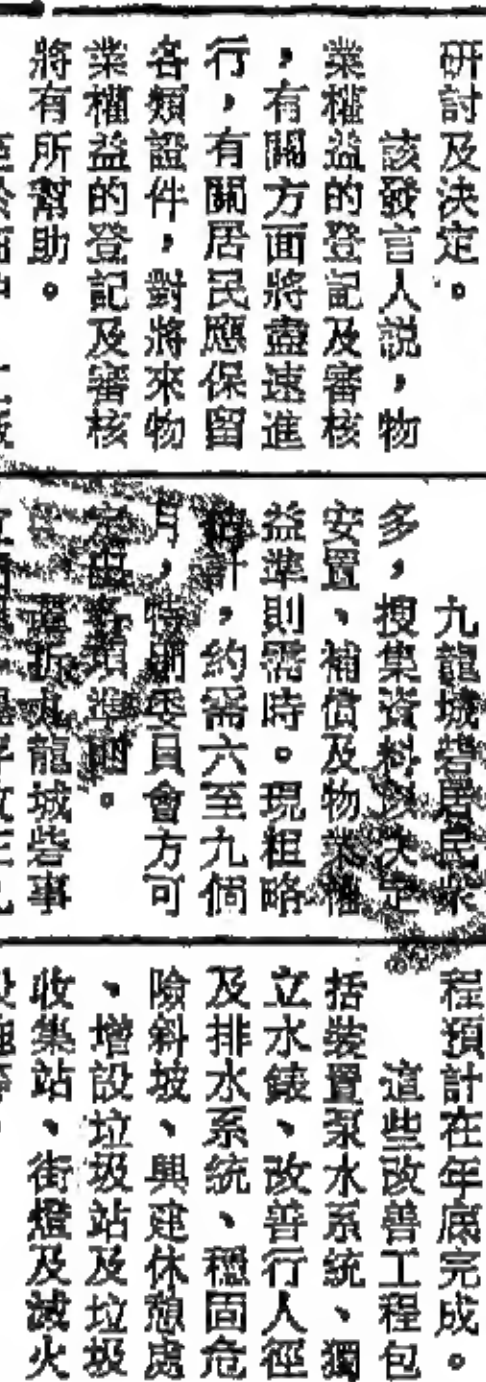 研討及決定。
該發言人説，物
業權益的登記及審核
，有關方面將盡速進
行，有關居民應保留
各類證件，對將來物
業權益的登記及審核
將有所幫助。
九龍城砦居民衆
多，搜集資料以決定
安置、補償及物業權
益準則需時。現粗略
估計，約需六至九個
月，特別委員會方可
定出各類準則。
清拆九龍城砦事
程預計在年底完成。
這些改善工程包
括裝置泵水系統、獨
立水錶、改善行人徑
及排水系統、穩固危
險斜坡、興建休憩處
、增設垃圾站及垃圾
收集站、街燈及滅火